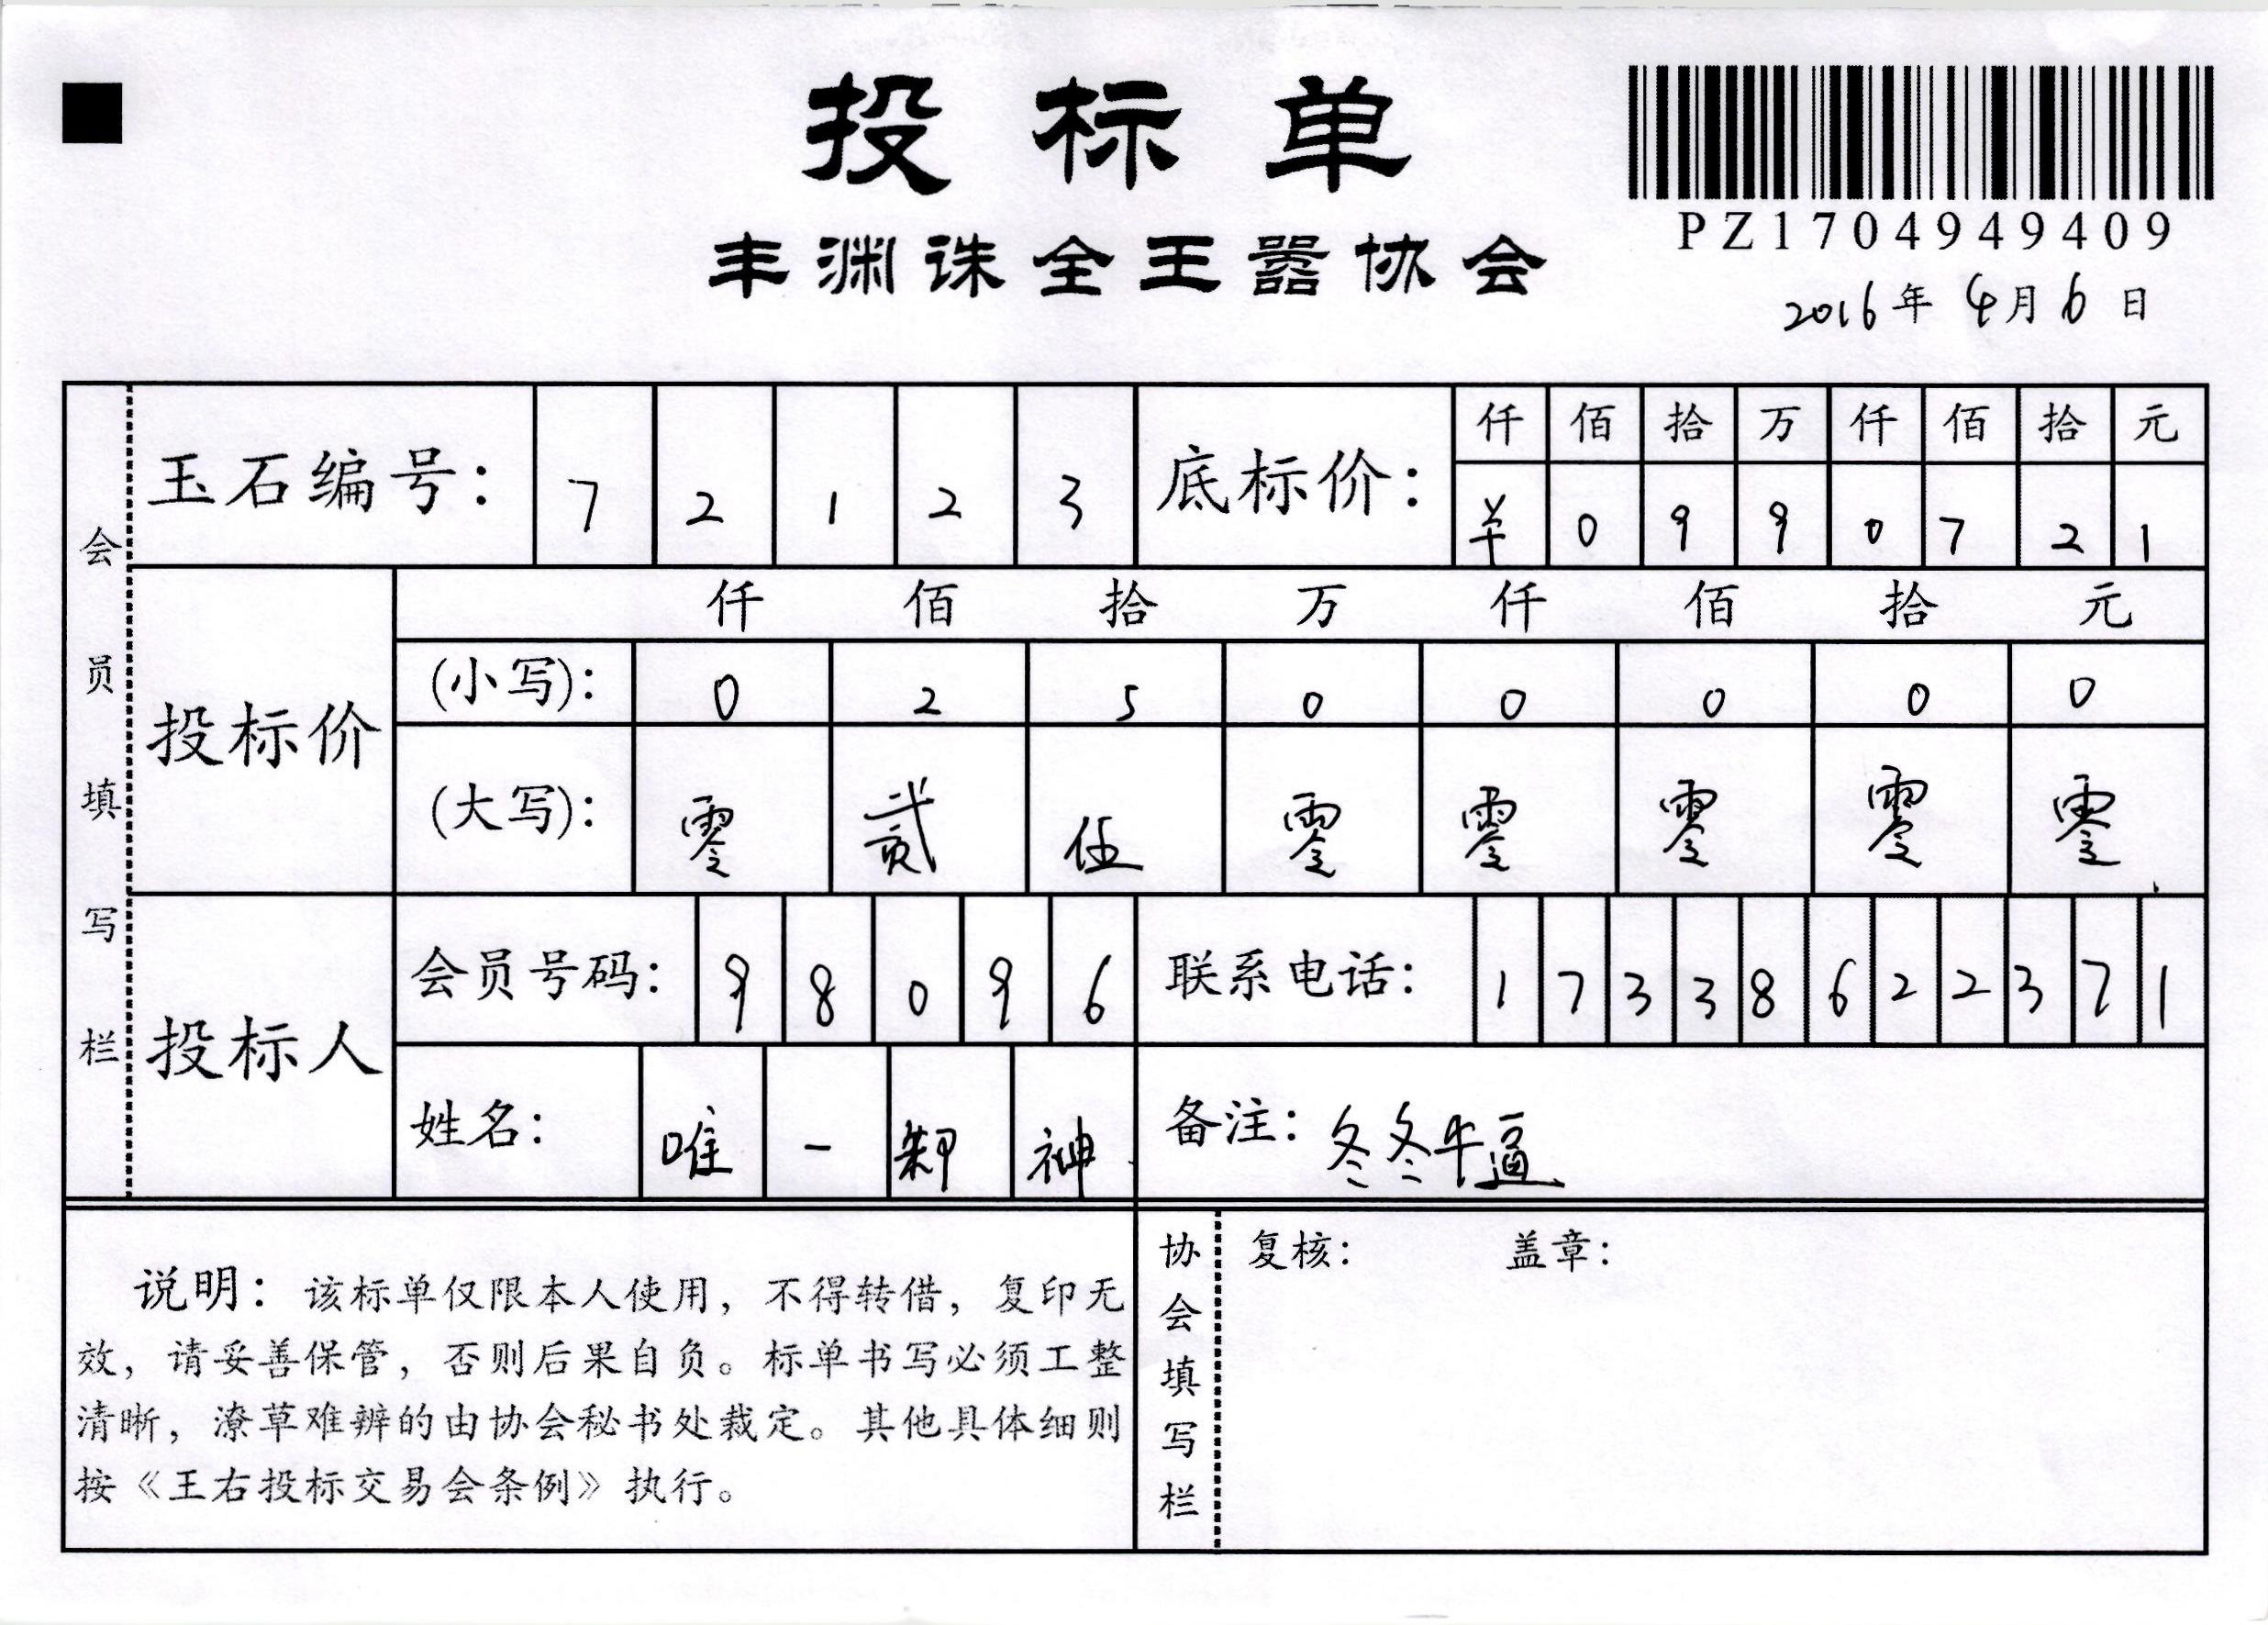 投标单
PZ1704949409
丰渊诛全王嚣协会
2016年 4月 6 日
会员填写栏
玉石编号： 7 2 1 2 3
底标价： 仟 佰 拾 万 仟 佰 拾 元
0 9 9 0 7 2 1
投标价
仟 佰 拾 万 仟 佰 拾 元
(小写)： 0 2 5 0 0 0 0 0
(大写)： 零 贰 伍 零 零 零 零 零
投标人
会员号码： 9 8 0 9 6
联系电话： 1 7 3 3 8 6 2 2 3 7 1
姓名： 唯 一 神
备注： 冬冬牛逼
说明：该标单仅限本人使用，不得转借，复印无
效，请妥善保管，否则后果自负。标单书写必须工整
清晰，潦草难辨的由协会秘书处裁定。其他具体细则
按《王右投标交易会条例》执行。
协会填写栏
复核： 盖章：